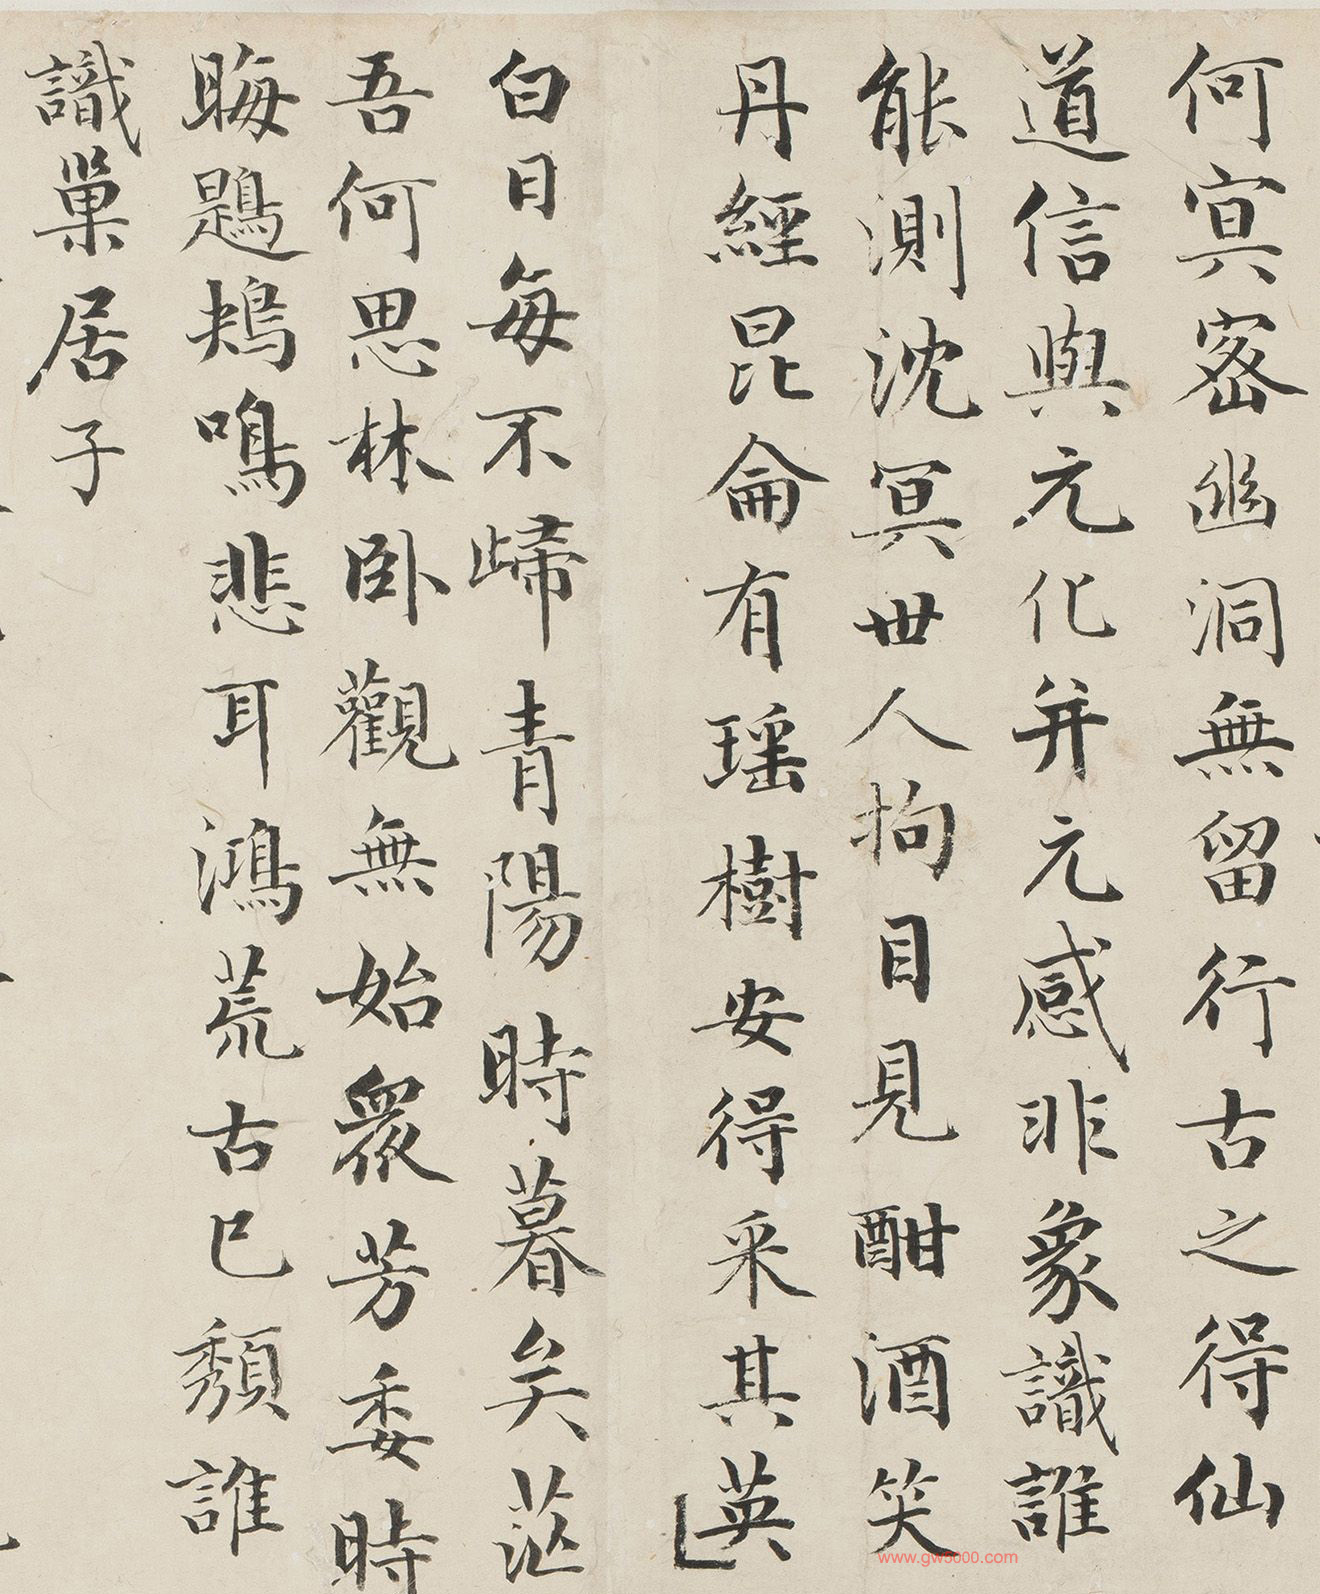 何冥密幽洞無留行古之得仙
道信與元化并元感非象識誰
能測沈冥世人拘目見酣酒笑
丹經昆侖有瑶樹安得采其英
白日每不歸青陽時暮矣茫
吾何思林卧觀無始眾芳委時
晦鶗鴂鳴悲耳鴻荒古已頹誰
識巢居子
www.gw5000.com